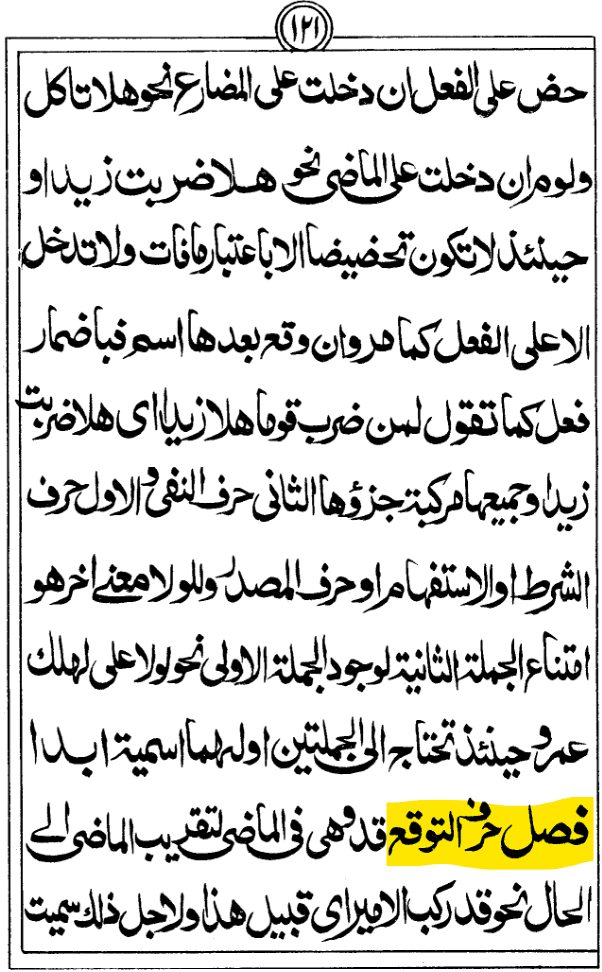 ١٢١
حض على الفعل ان دخلت على المضارع نحو هلا تاكل
ولوم ان دخلت على الماضى نحو هلا ضربت زيدا و
حينئذ لا تكون تحضيضا الا باعتبار مافات ولا تدخل
الا على الفعل كما مر وان وقع بعدها اسم فباضمار
فعل كما تقول لمن ضرب قوما هلا زيدا اى هلا ضربت
زيدا وجميعها مركبة جزؤها الثانى حرف النفى والاول حرف
الشرط او الاستفهام او حرف المصدر وللولا معنے اخر هو
امتناع الجملة الثانية لوجود الجملة الاولى نحو لولا على لهلك
عمر و حينئذ تحتاج الى الجملتين اولهما اسمية ابدا
فصل حرف التوقع قد وهى فى الماضى لتقريب الماضى الے
الحال نحو قد ركب الامير اى قبيل هذا ولاجل ذلك سميت